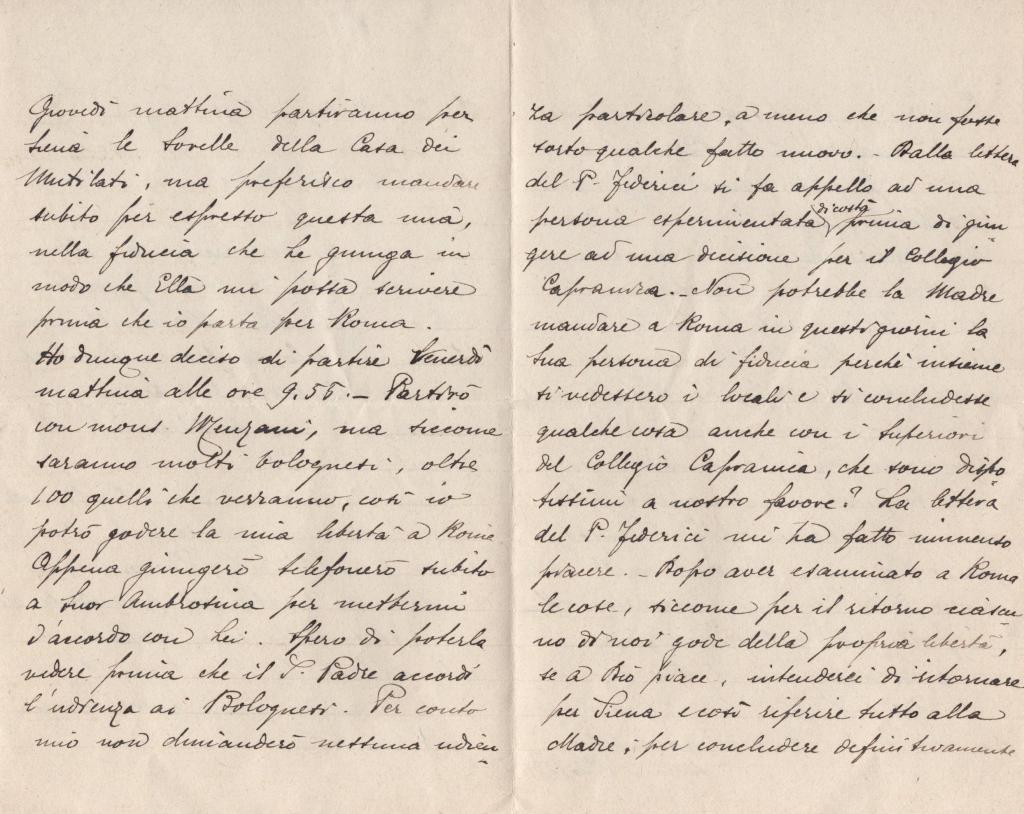 Giovedì mattina partiranno per
Siena le Sorelle della Casa dei
Mutilati, ma preferisco mandare
subito per espresso questa mia,
nella fiducia che Le giunga in
modo che Ella mi possa scrivere
prima che io parta per Roma.
Ho dunque deciso di partire Venerdì
mattina alle ore 9.55. - Partirò
con mons. Menzani, ma siccome
saranno molti bolognesi, oltre
100 quelli che verranno, così io
potrò godere la mia libertà a Roma
Appena giungerò telefonerò subito
a Suor Ambrosina per mettermi
d'accordo con Lei. Spero di poterla
vedere prima che il S. Padre accordi
l'udienza ai Bolognesi. Per conto
mio non dimanderò nessuna udien-
za particolare, a meno che non fosse
sorto qualche fatto nuovo. - Dalla lettera
del P. Federici si fa appello ad una
persona esperimentata di costà prima di giun
gere ad una decisione per il Collegio
Capranica. - Non potrebbe la Madre
mandare a Roma in questi giorni la
Sua persona di fiducia perchè insieme
si vedessero i locali e si concludesse
qualche cosa anche con i Superiori
del Collegio Capranica, che sono dispo
stissimi a nostro favore? La lettera
del P. Federici mi ha fatto immenso
piacere. - Dopo aver esaminato a Roma
le cose, siccome per il ritorno ciascu
no di noi gode della propria libertà,
se a Dio piace, intenderei di ritornare
per Siena e così riferire tutto alla
Madre; per concludere definitivamente